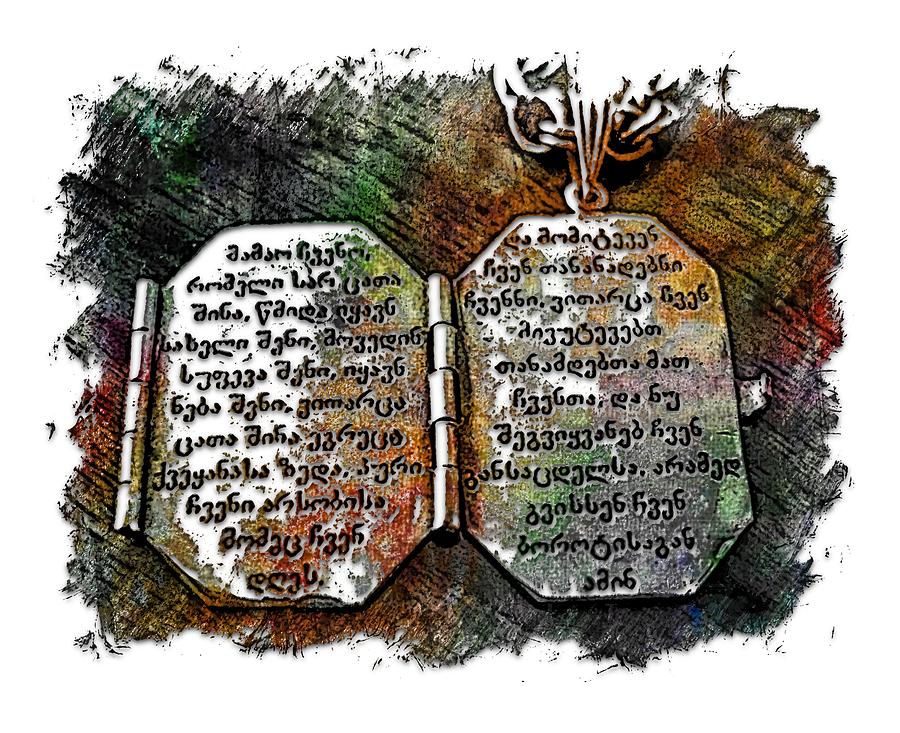 მამაო ჩვენო,
რომელი ხარ ცათა
შინა, წმიდა იყავნ
სახელი შენი, მოვედინ
სუფევა შენი, იყავნ
ნება შენი, ვითარცა
ცათა შინა ეგრეცა
ქვეყანასა ზედა. პური
ჩვენი არსობისა
მომეც ჩვენ
დღეს,
და მომიტევენ
ჩვენ თანანადებნი
ჩვენნი, ვითარცა ჩვენ
მივუტევებთ
თანამდებთა მათ
ჩვენთა, და ნუ
შეგვიყვანებ ჩვენ
განსაცდელსა, არამედ
გვისსენ ჩვენ
ბოროტისაგან
ამინ